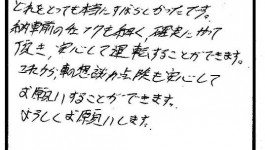 どれをとっても本当にすばらしかったです。
納車前のチェックも細く、確実にやって
頂き、安心して運転することができます。
これから、車の想談力点検も安心して
お願いすることができます。
よろしくお願いします。